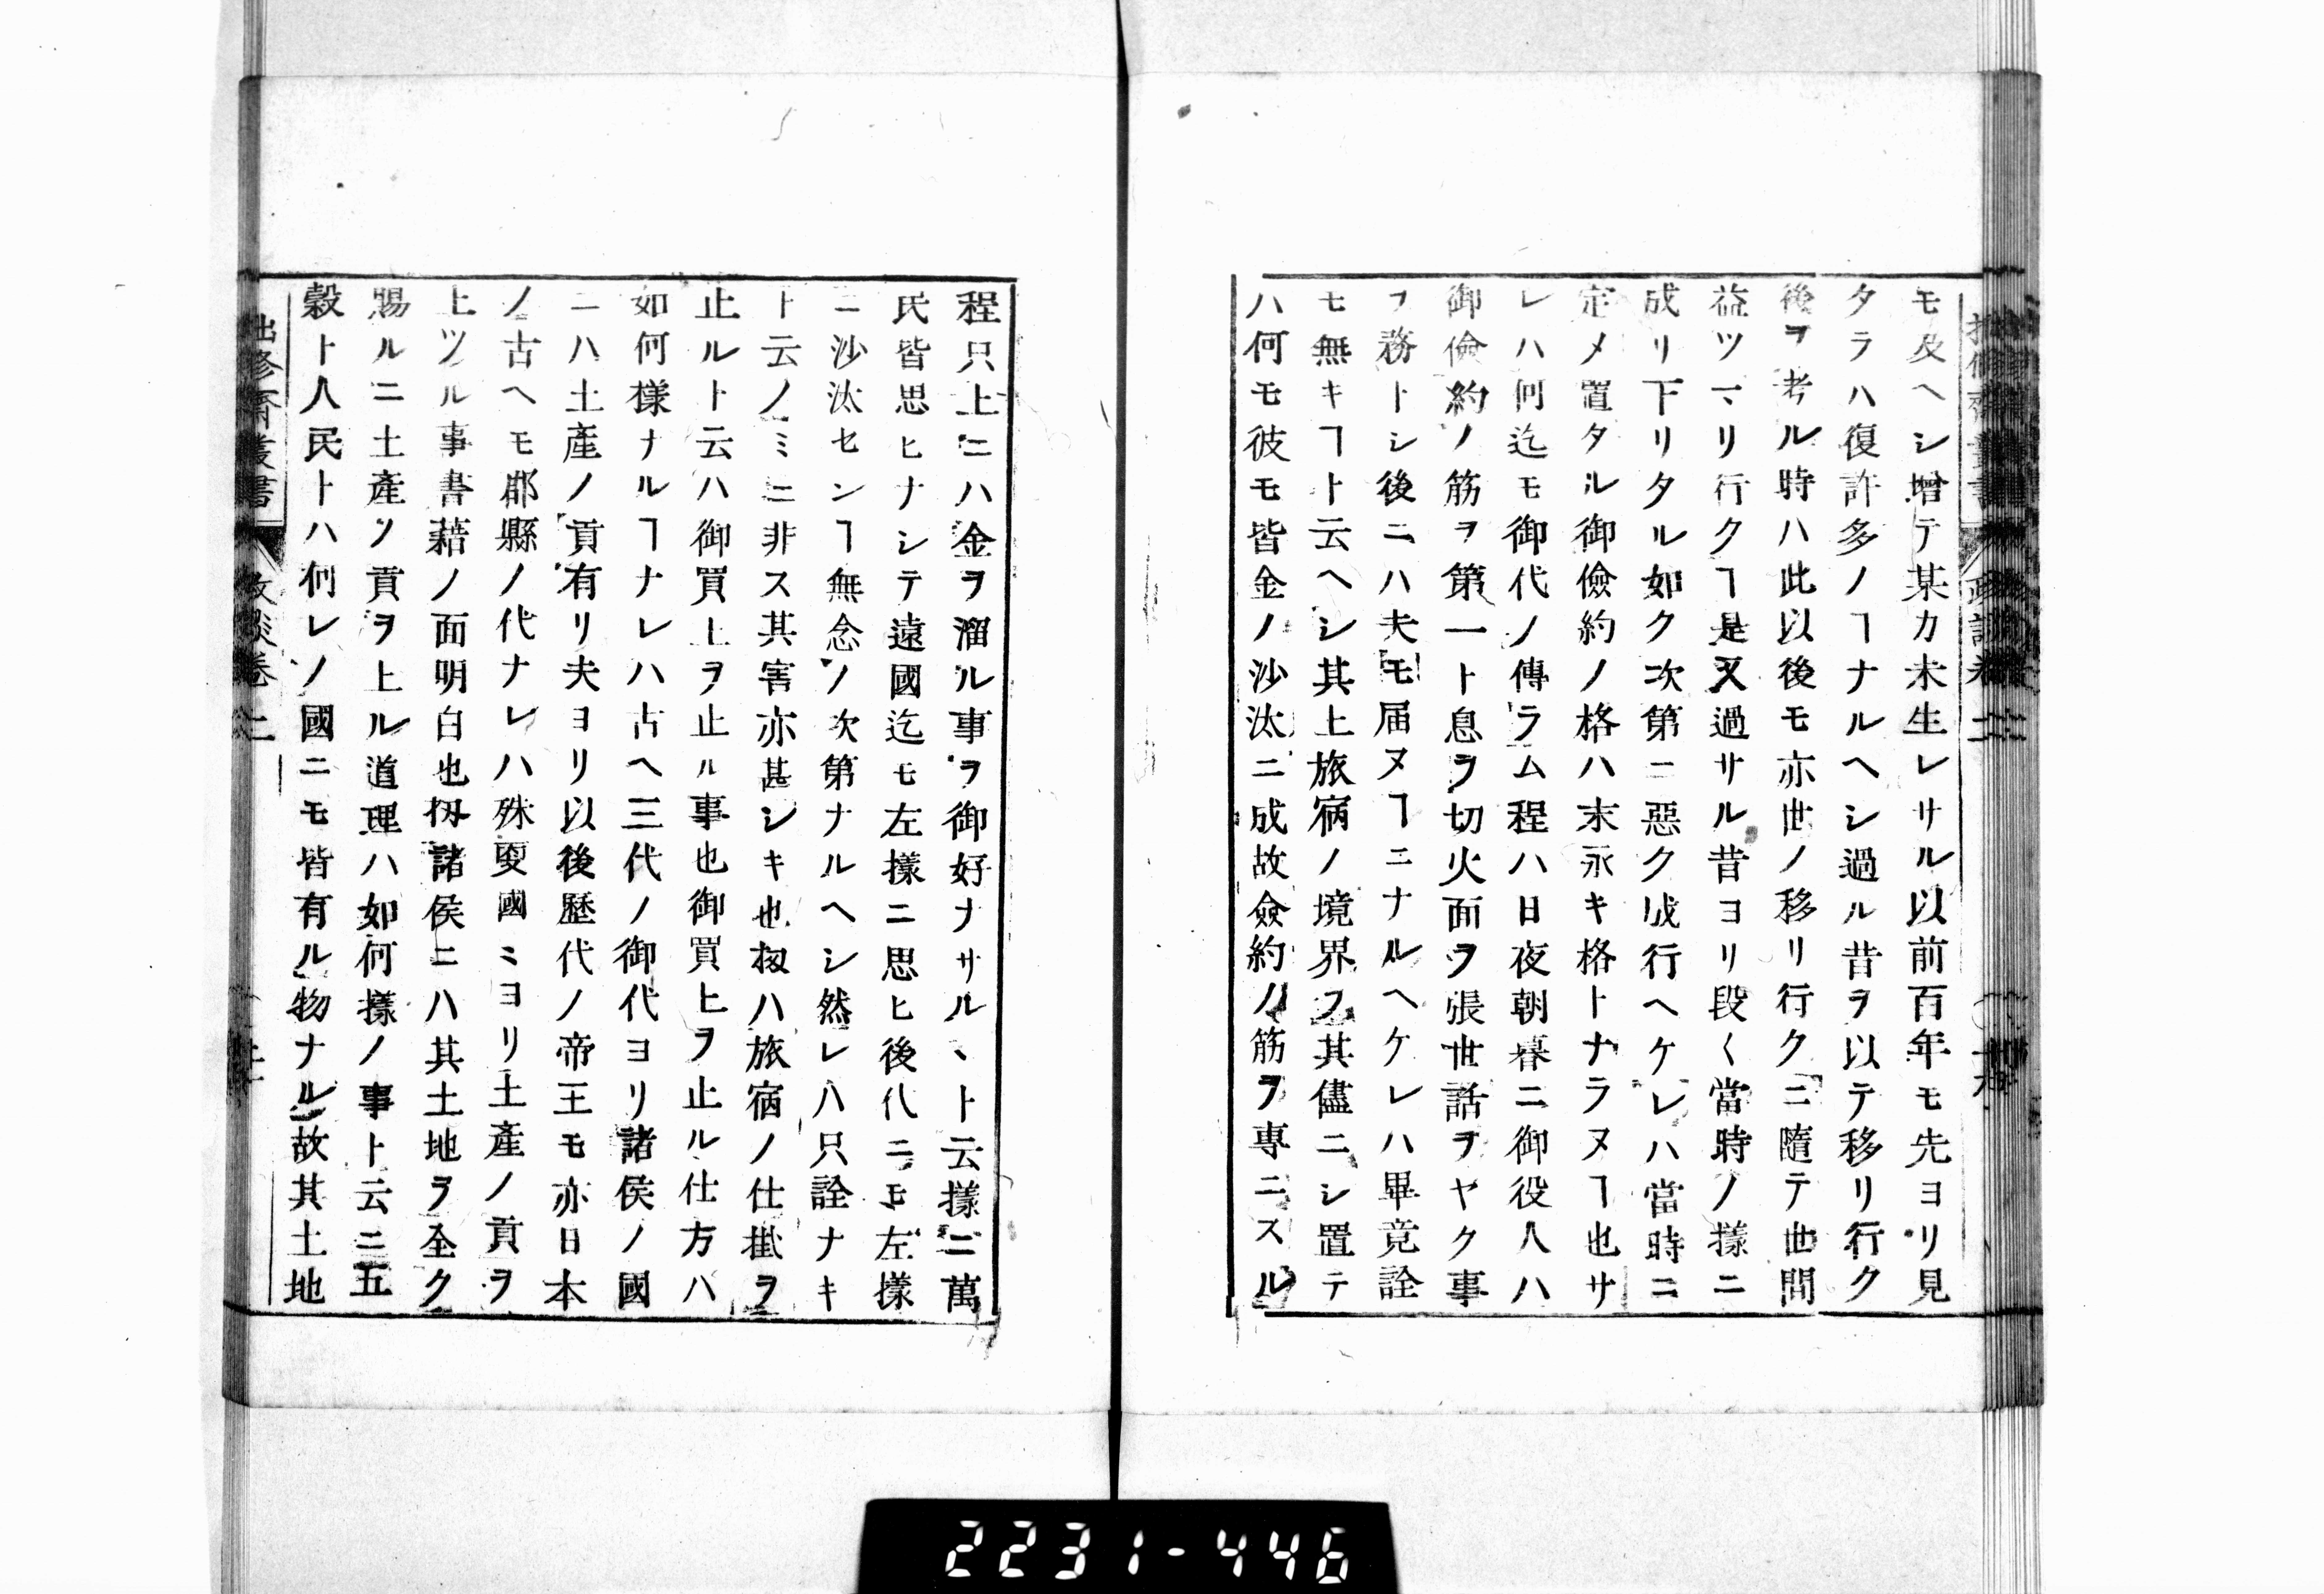 モ及ヘシ増テ某カ未生レサル以前百年モ先ヨリ見
タラハ復許多ノヿナルヘシ過ル昔ヲ以テ移リ行ク
後ヲ考ル時ハ此以後モ亦世ノ移リ行クニ隨テ世間
益ツマリ行クヿ是又過サル昔ヨリ段〱當時ノ様ニ
成リ下リタル如ク次第ニ惡ク成行ヘケレハ當時ニ
定メ置タル御儉約ノ格ハ末永キ格トナラヌヿ也サ
レハ何迄モ御代ノ傳ラム程ハ日夜朝暮ニ御役人ハ
御儉約ノ筋ヲ第一ト息ヲ切火面ヲ張世話ヲヤク事
ヲ務トシ後ニハ夫モ届ヌヿニナルヘケレハ畢竟詮
モ無キヿト云ヘシ其上旅宿ノ境界ヲ其儘ニシ置テ
ハ何モ彼モ皆金ノ沙汰ニ成故儉約ノ筋ヲ專ニスル
程只上ニハ金ヲ溜ル事ヲ御好ナサルヽト云様ニ萬
民皆思ヒナシテ遠國迄モ左様ニ思ヒ後代ニモ左様
ニ沙汰センヿ無念ノ次第ナルヘシ然レハ只詮ナキ
ト云ノミニ非ス其害亦甚シキ也扨ハ旅宿ノ仕掛ヲ
止ルト云ハ御買上ヲ止ル事也御買上ヲ止ル仕方ハ
如何様ナルヿナレハ古ヘ三代ノ御代ヨリ諸侯ノ國
ニハ土產ノ貢有リ夫ヨリ以後歷代ノ帝王モ亦日本
ノ古ヘモ郡縣ノ代ナレハ殊更國〻ヨリ土產ノ貢ヲ
上ツル事書籍ノ面明白也扨諸侯ニハ其土地ヲ全ク
賜ルニ土產ノ貢ヲ上ル道理ハ如何様ノ事ト云ニ五
穀ト人民トハ何レノ國ニモ皆有ル物ナル故其土地
出修齋叢書 政談卷二